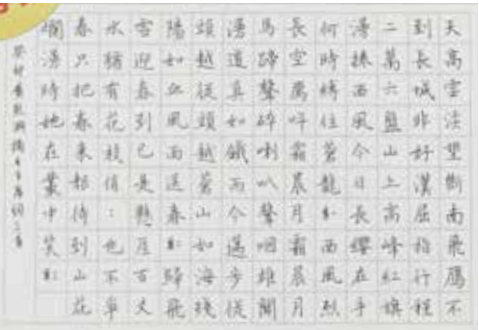 天高雲淡望斷南飛鷹不
到長城非好漢屈指行程
二萬六盤山上高峰紅旗
漫捲西風今日長纓在手
何時縛住蒼龍西風烈
長空鷹叫霜晨月霜晨月
馬蹄聲碎喇叭聲咽雄關
漫道真如鐵而今邁步從
頭越從頭越蒼山如海殘
陽如血風雨送春歸飛
雪迎春到已是懸崖百丈
冰猶有花枝俏:也不爭
春只把春來報待到山花
爛漫時她在叢中笑